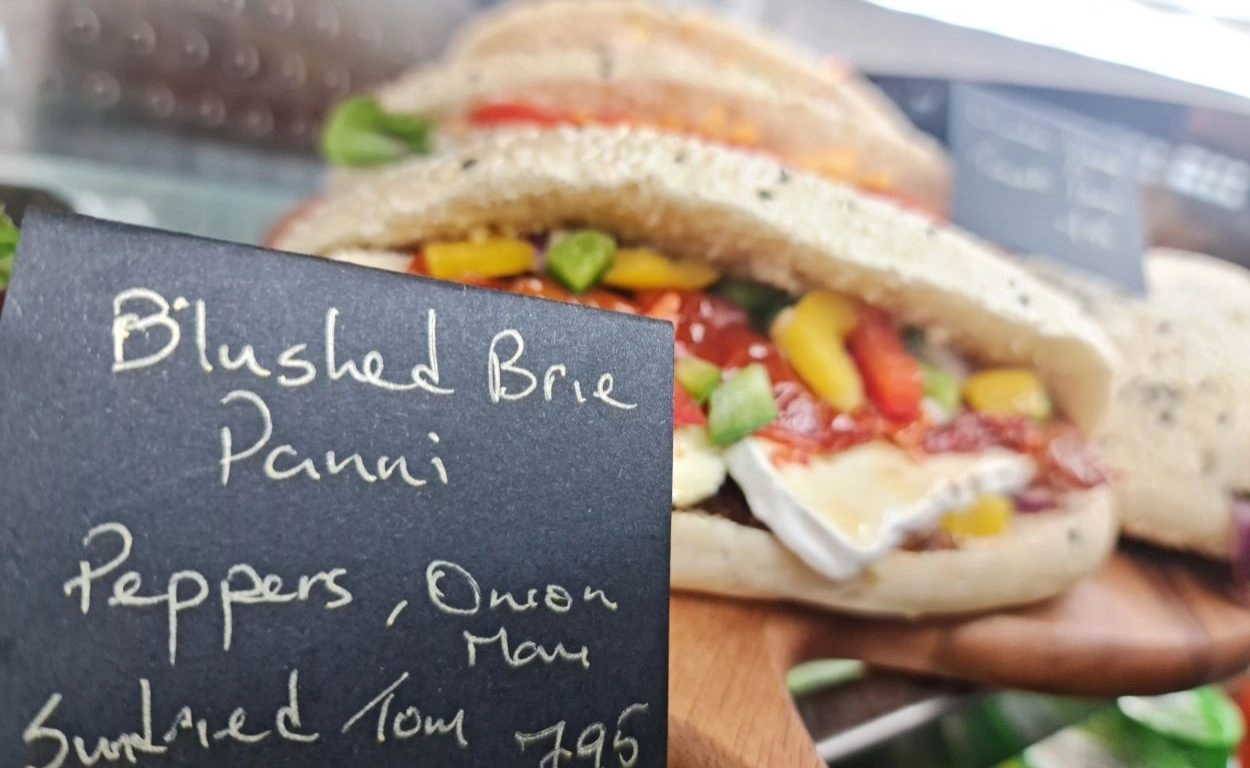 Blushed Brie
Panni
Peppers, Onion
Mayo
Sundried Tom 795